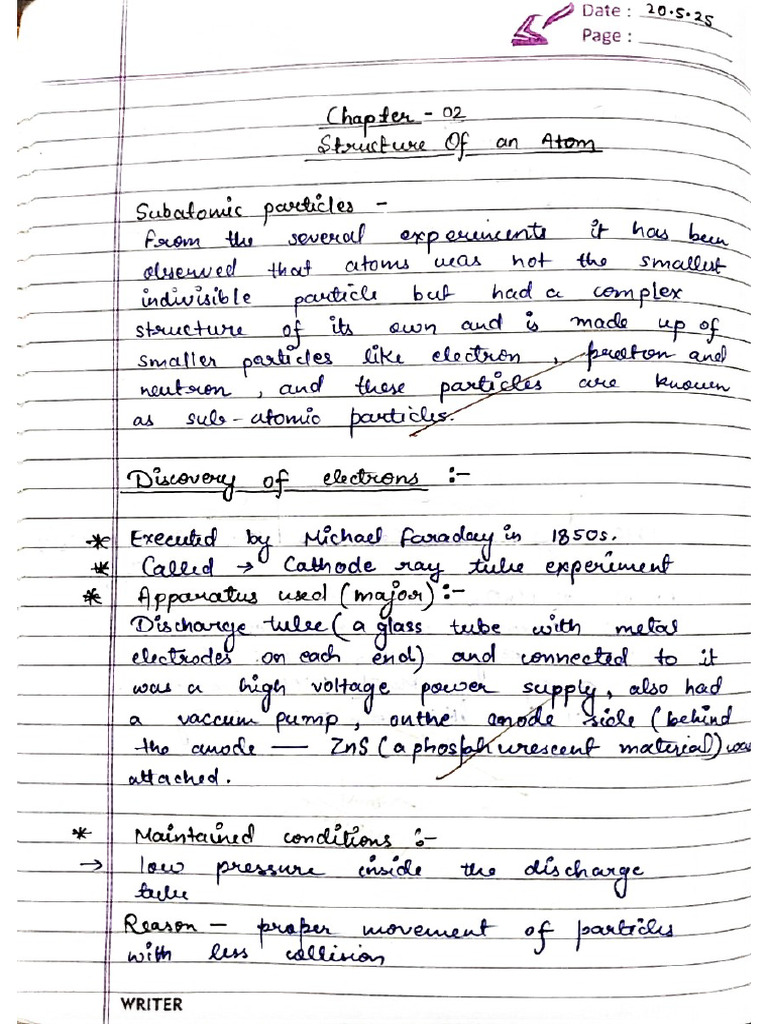 Date : 20.5.25
Page :
Chapter - 02
Structure Of an Atom
Subatomic particles -
From the several experiments it has been
observed that atoms was not the smallest
indivisible particle but had a complex
structure of its own and is made up of
smaller particles like electron , proton and
neutron , and these particles are known
as sub-atomic particles.
Discovery of electrons :-
* Executed by Michael Faraday in 1850s.
* Called → Cathode ray tube experiment
* Apparatus used (major) :-
Discharge tube ( a glass tube with metal
electrodes on each end) and connected to it
was a high voltage power supply, also had
a vaccum pump , onthe anode side (behind
the anode — ZnS (a phosphurescent material) was
attached.
* Maintained conditions :-
→ low pressure inside the discharge
tube
Reason — proper movement of particles
with less collision
WRITER